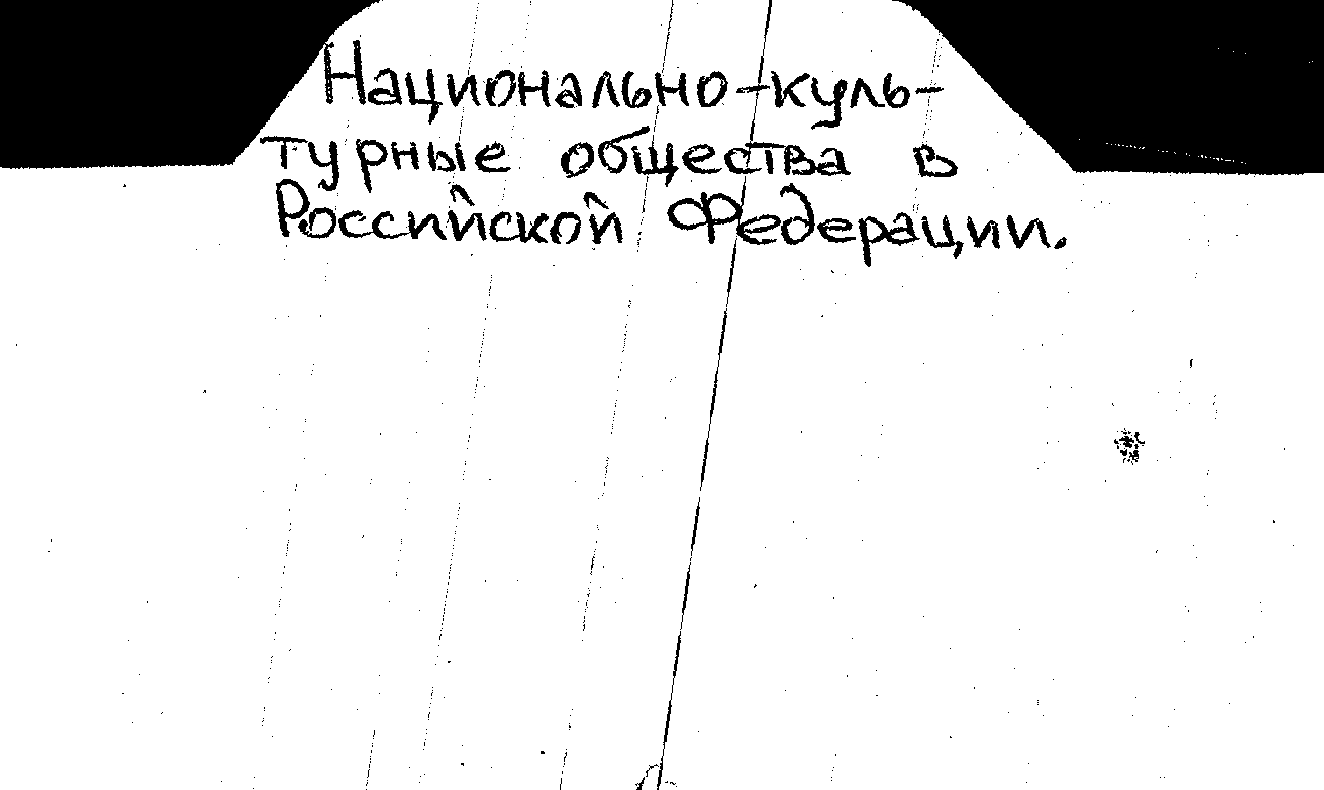 Национально-куль-
турные общества в
Российской Федерации.